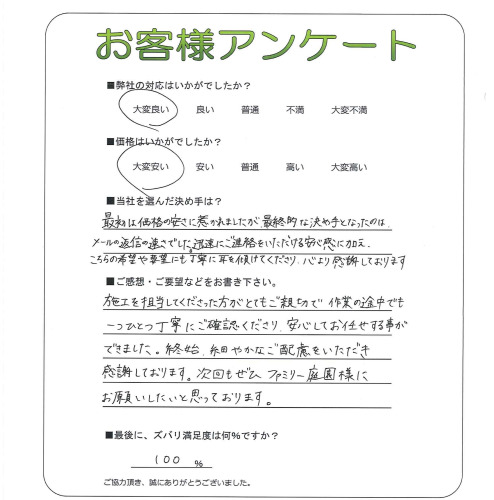 お客様アンケート
■弊社の対応はいかがでしたか？
大変良い 良い 普通 不満 大変不満
■価格はいかがでしたか？
大変安い 安い 普通 高い 大変高い
■当社を選んだ決め手は？
最初は価格の安さに惹かれましたが、最終的な決め手となったのは、
メールの返信の速さでした。迅速にご連絡をいただける安心感に加え、
こちらの希望や要望にも丁寧に耳を傾けてくださり、心より感謝しております
■ご感想・ご要望などをお書き下さい。
施工を担当してくださった方がとてもご親切で 作業の途中でも
一つひとつ丁寧にご確認くださり、安心してお任せする事が
できました。終始、細やかなご配慮をいただき
感謝しております。次回もぜひ ファミリー庭園様に
お願いしたいと思っております。
■最後に、ズバリ満足度は何％ですか？
100 ％
ご協力頂き、誠にありがとうございました。